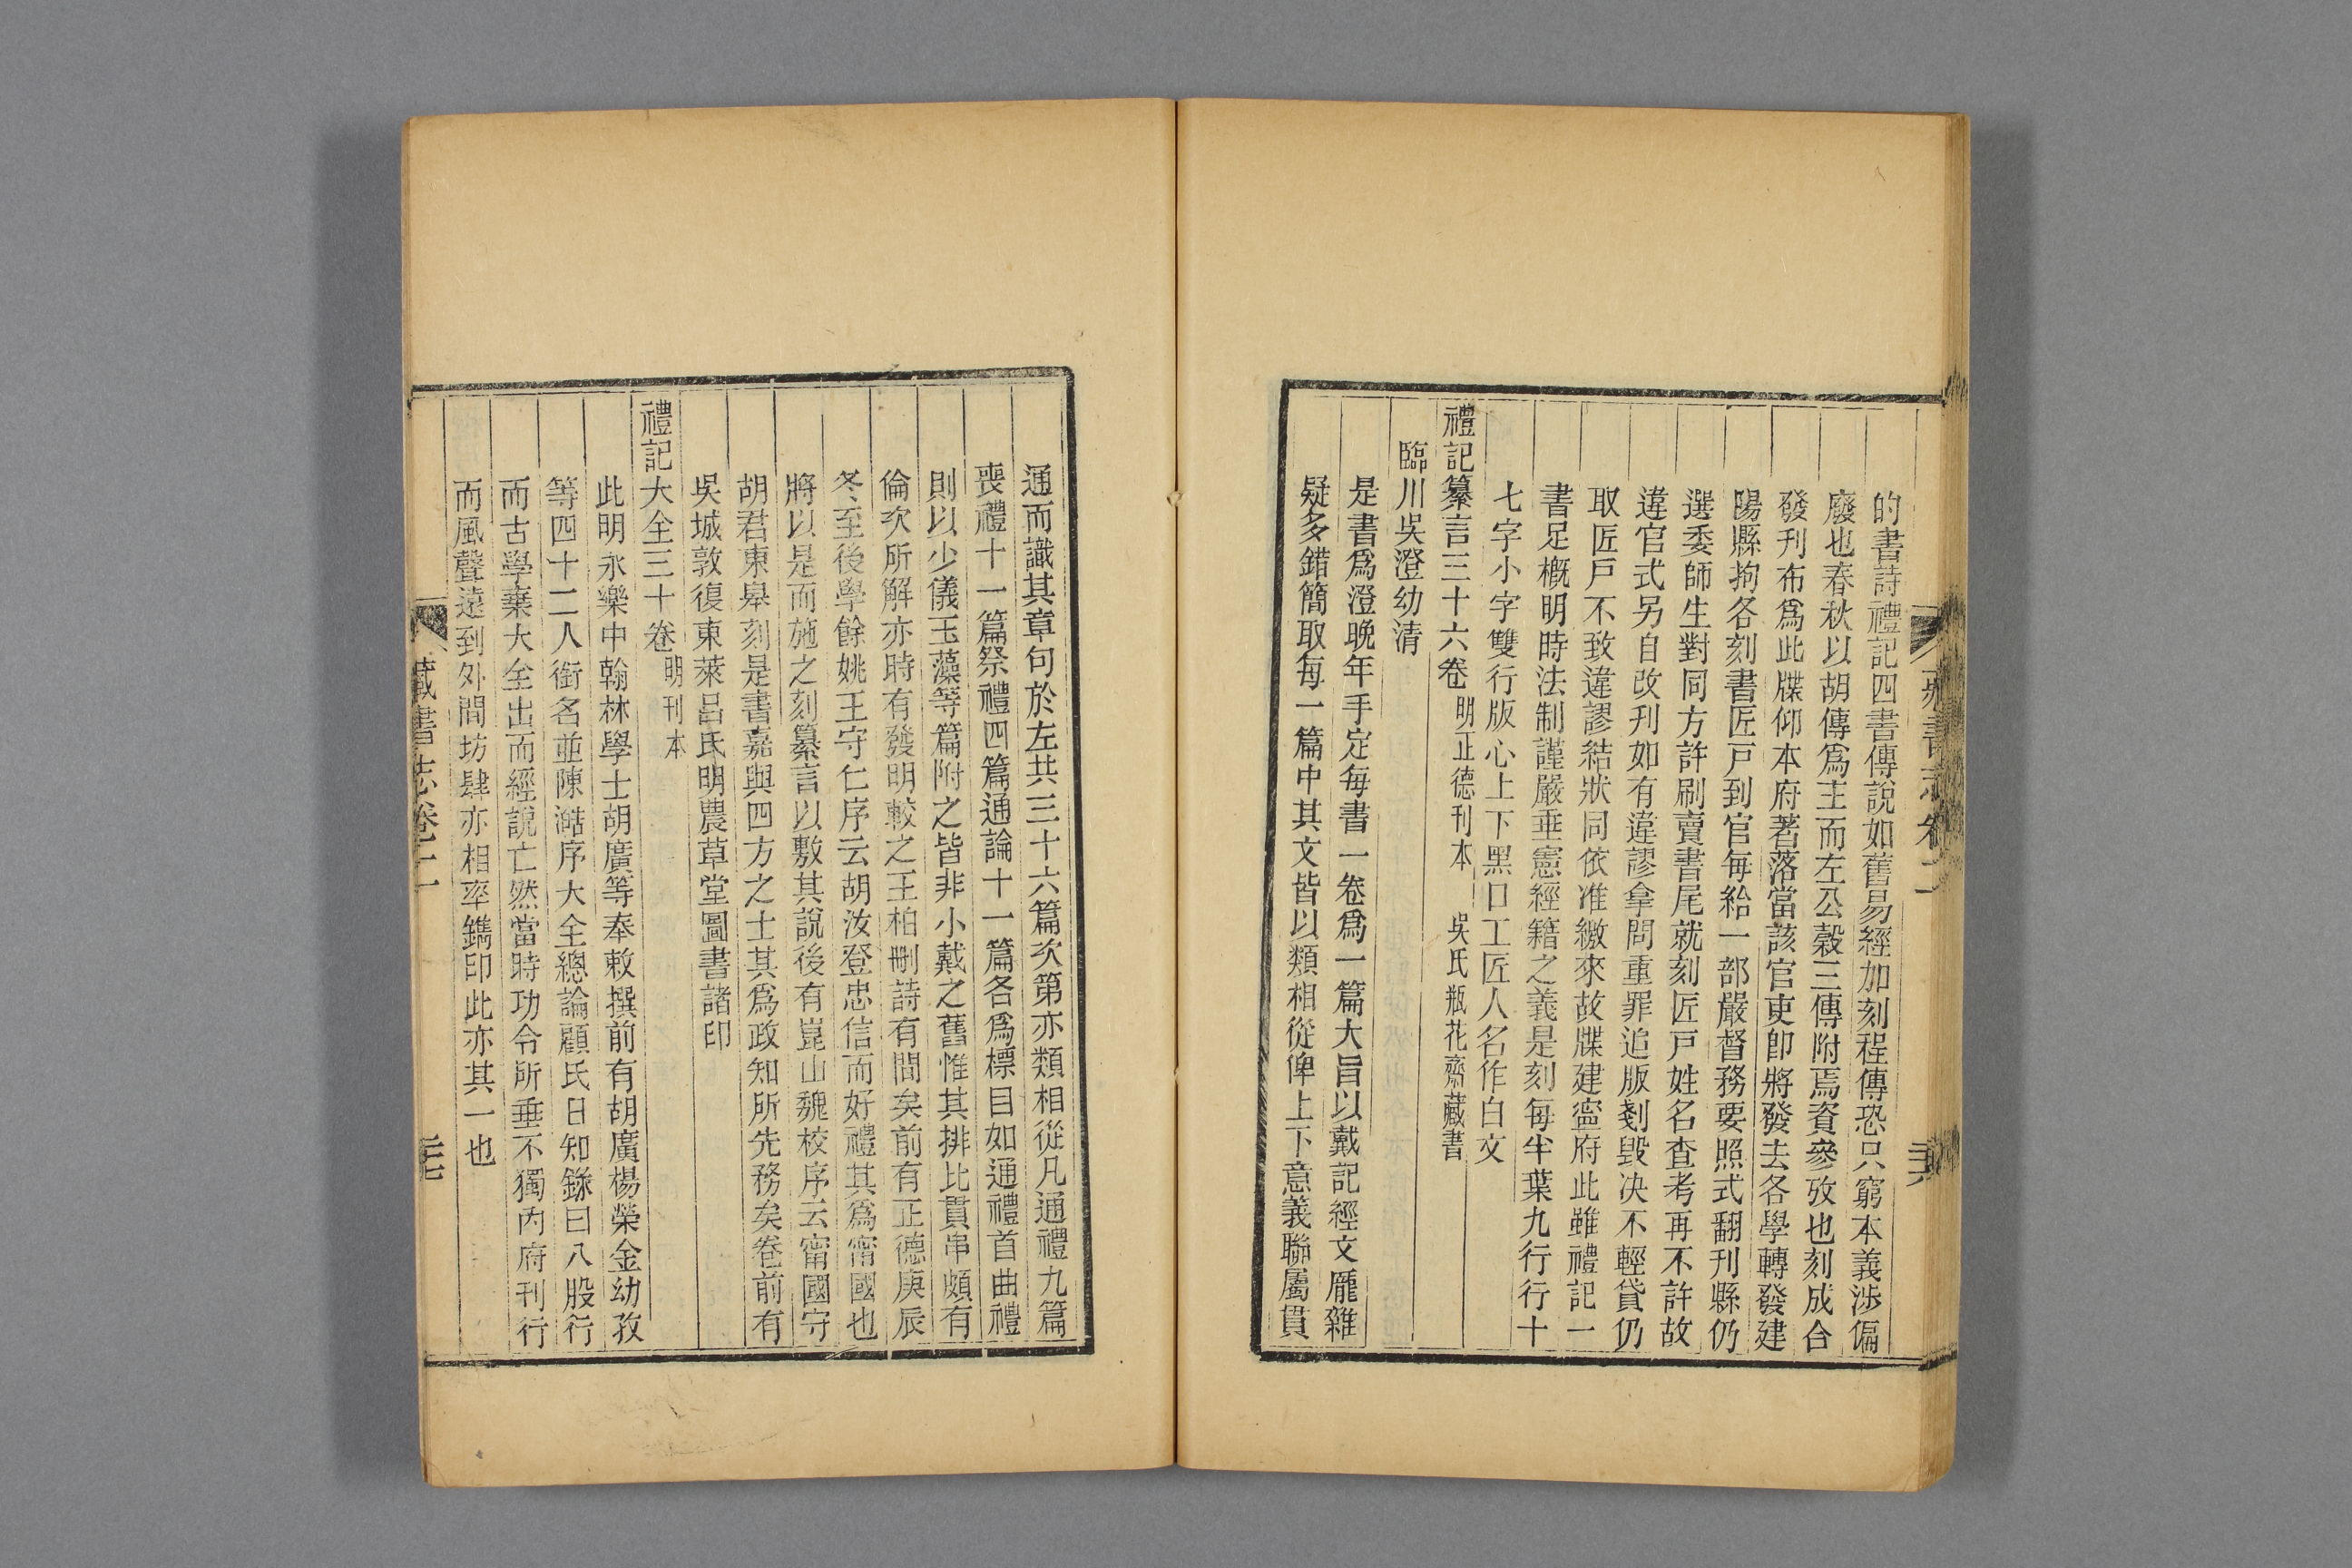 的書詩禮記四書傳說如舊易經加刻程傳恐只窮本義涉偏
廢也春秋以胡傳爲主而左公穀三傳附焉資參攷也刻成合
發刊布爲此牒仰本府著落當該官吏即將發去各學轉發建
陽縣拘各刻書匠戶到官每給一部嚴督務要照式翻刊縣仍
選委師生對同方許刷賣書尾就刻匠戶姓名查考再不許故
違官式另自改刊如有違謬拿問重罪追版剗毀決不輕貸仍
取匠戶不致違謬結狀同依准繳來故牒建寧府此雖禮記一
書足概明時法制謹嚴垂憲經籍之義是刻每半葉九行行十
七字小字雙行版心上下黑口工匠人名作白文
禮記纂言三十六卷 明正德刊本 吳氏瓶花齋藏書
臨川吳澄幼清
是書爲澄晚年手定每書一卷爲一篇大旨以戴記經文龐雜
疑多錯簡取每一篇中其文皆以類相從俾上下意義聯屬貫
通而識其章句於左共三十六篇次第亦類相從凡通禮九篇
喪禮十一篇祭禮四篇通論十一篇各爲標目如通禮首曲禮
則以少儀玉藻等篇附之皆非小戴之舊惟其排比貫串頗有
倫次所解亦時有發明較之王柏刪詩有間矣前有正德庚辰
冬至後學餘姚王守仁序云胡汝登忠信而好禮其爲甯國也
將以是而施之刻纂言以敷其說後有崑山魏校序云甯國守
胡君東皋刻是書嘉與四方之士其爲政知所先務矣卷前有
吳城敦復東萊呂氏明農草堂圖書諸印
禮記大全三十卷 明刊本
此明永樂中翰林學士胡廣等奉敕撰前有胡廣楊榮金幼孜
等四十二人銜名並陳澔序大全總論顧氏日知錄曰八股行
而古學棄大全出而經說亡然當時功令所垂不獨內府刊行
而風聲遠到外間坊肆亦相率鐫印此亦其一也
藏書志卷二